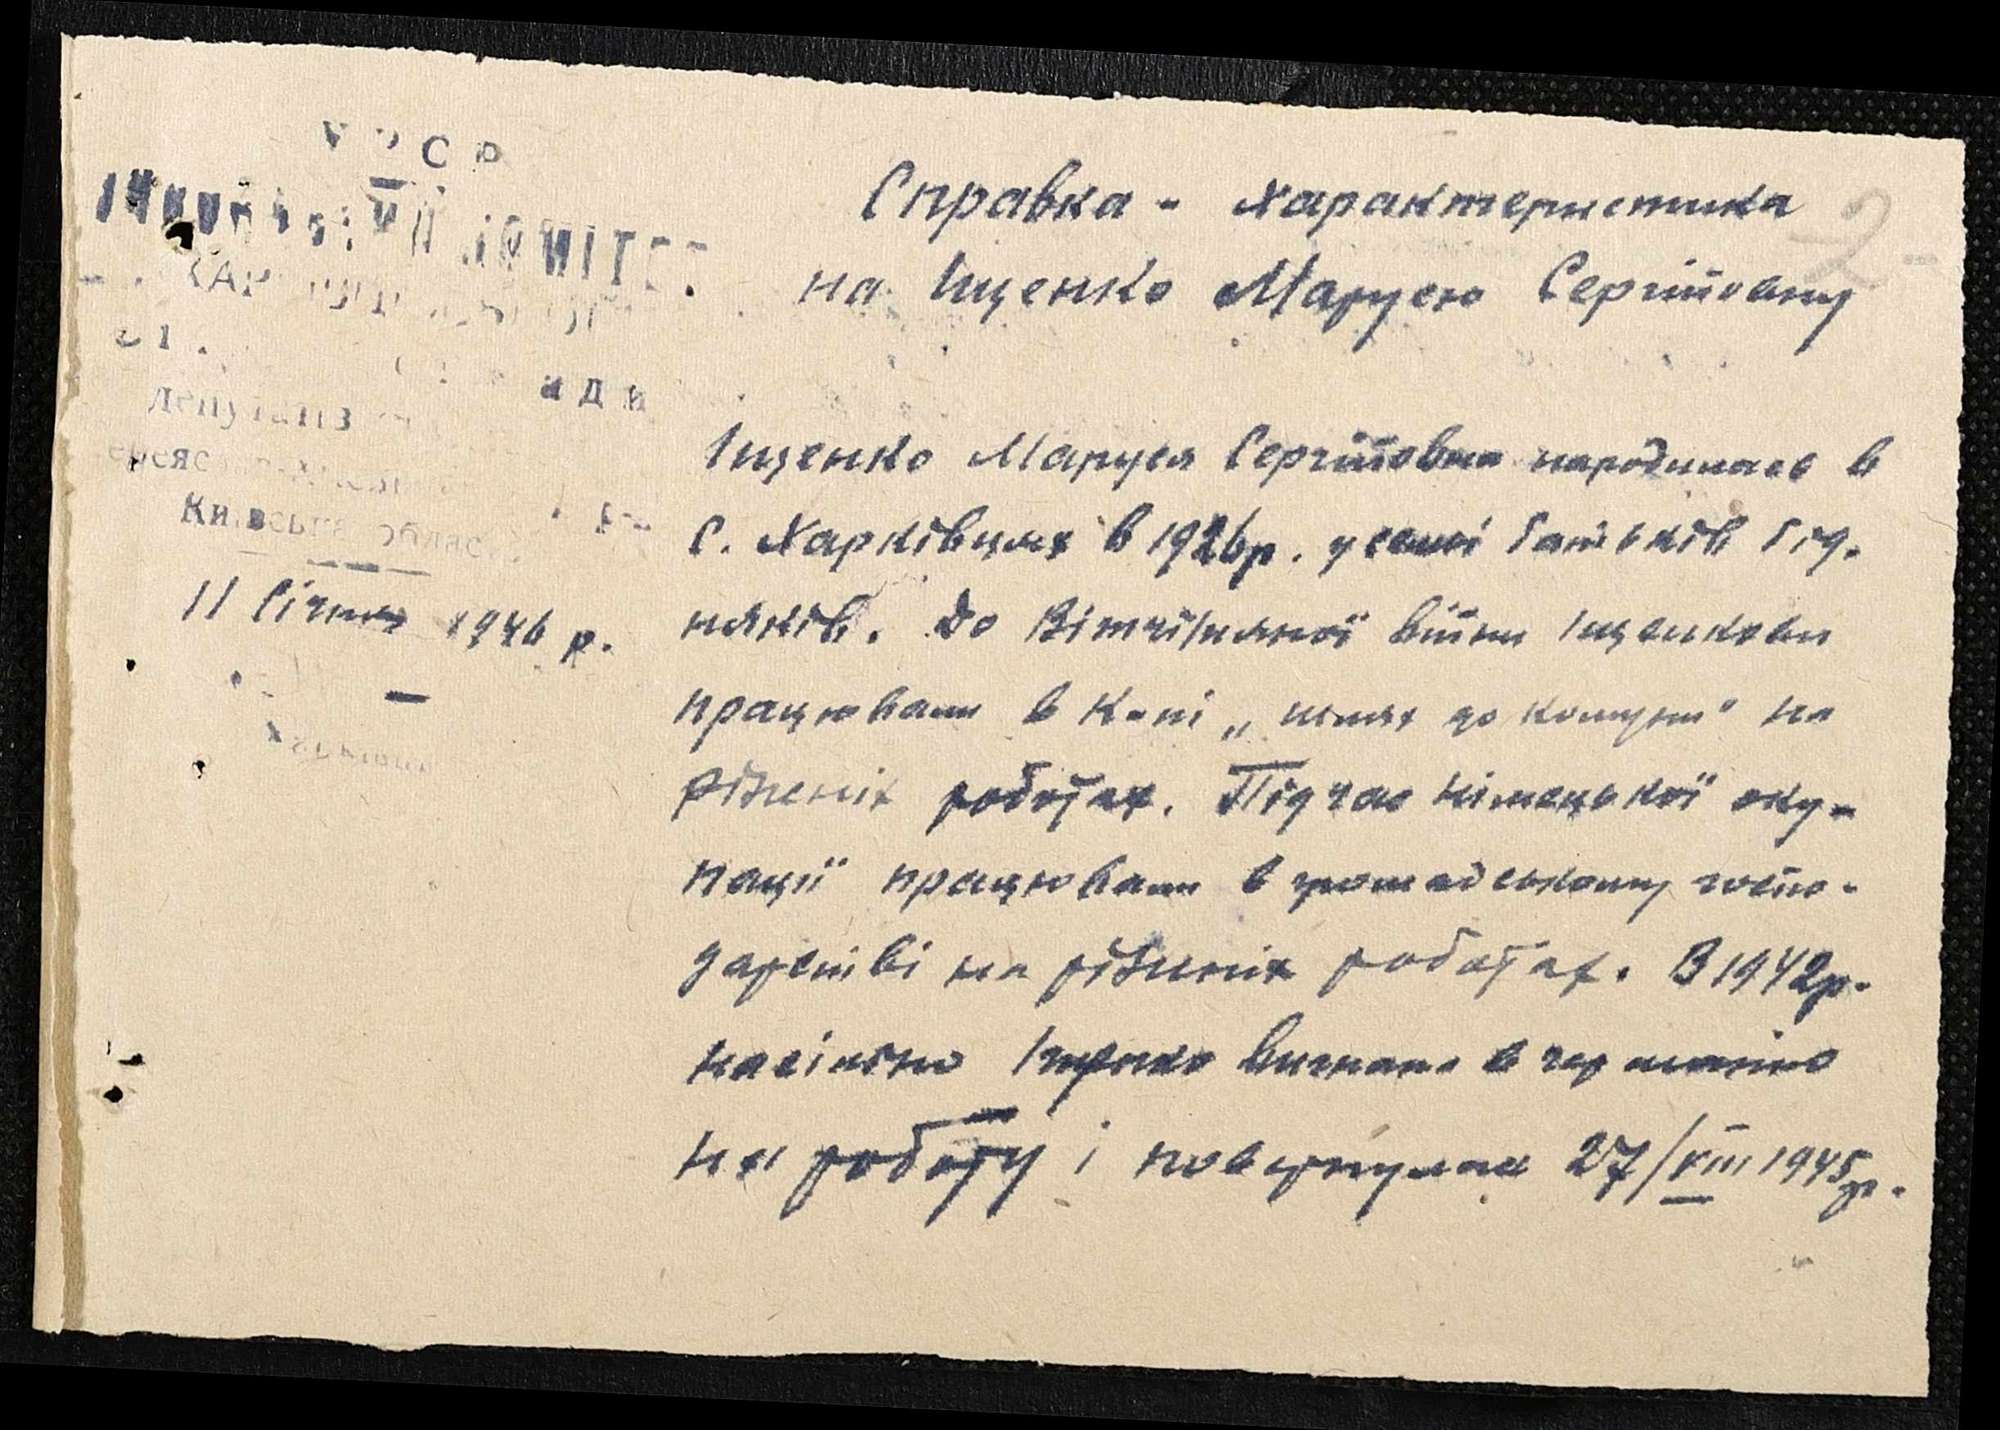 УРСР
КОМІТЕТ
депутатів
Київська област
11 Січня 1946 р.
2
Справка - характеристика
на Іщенко Марусю Сергіївну
Іщенко Маруся Сергіївна народилась в
с. Харківцях в 1926р. у семї батьків бід-
няків. До Вітчізняної війни Іщенкови
працювали в к-пі „шлях до комуни" на
різнених роботах. Під час німецької оку-
пації працювали в громадському госпо-
дарстві на різнених роботах. В 1942р.
насілєно Іщенко вигнано в германію
на роботу і повернулась 27/VIII 1945р.